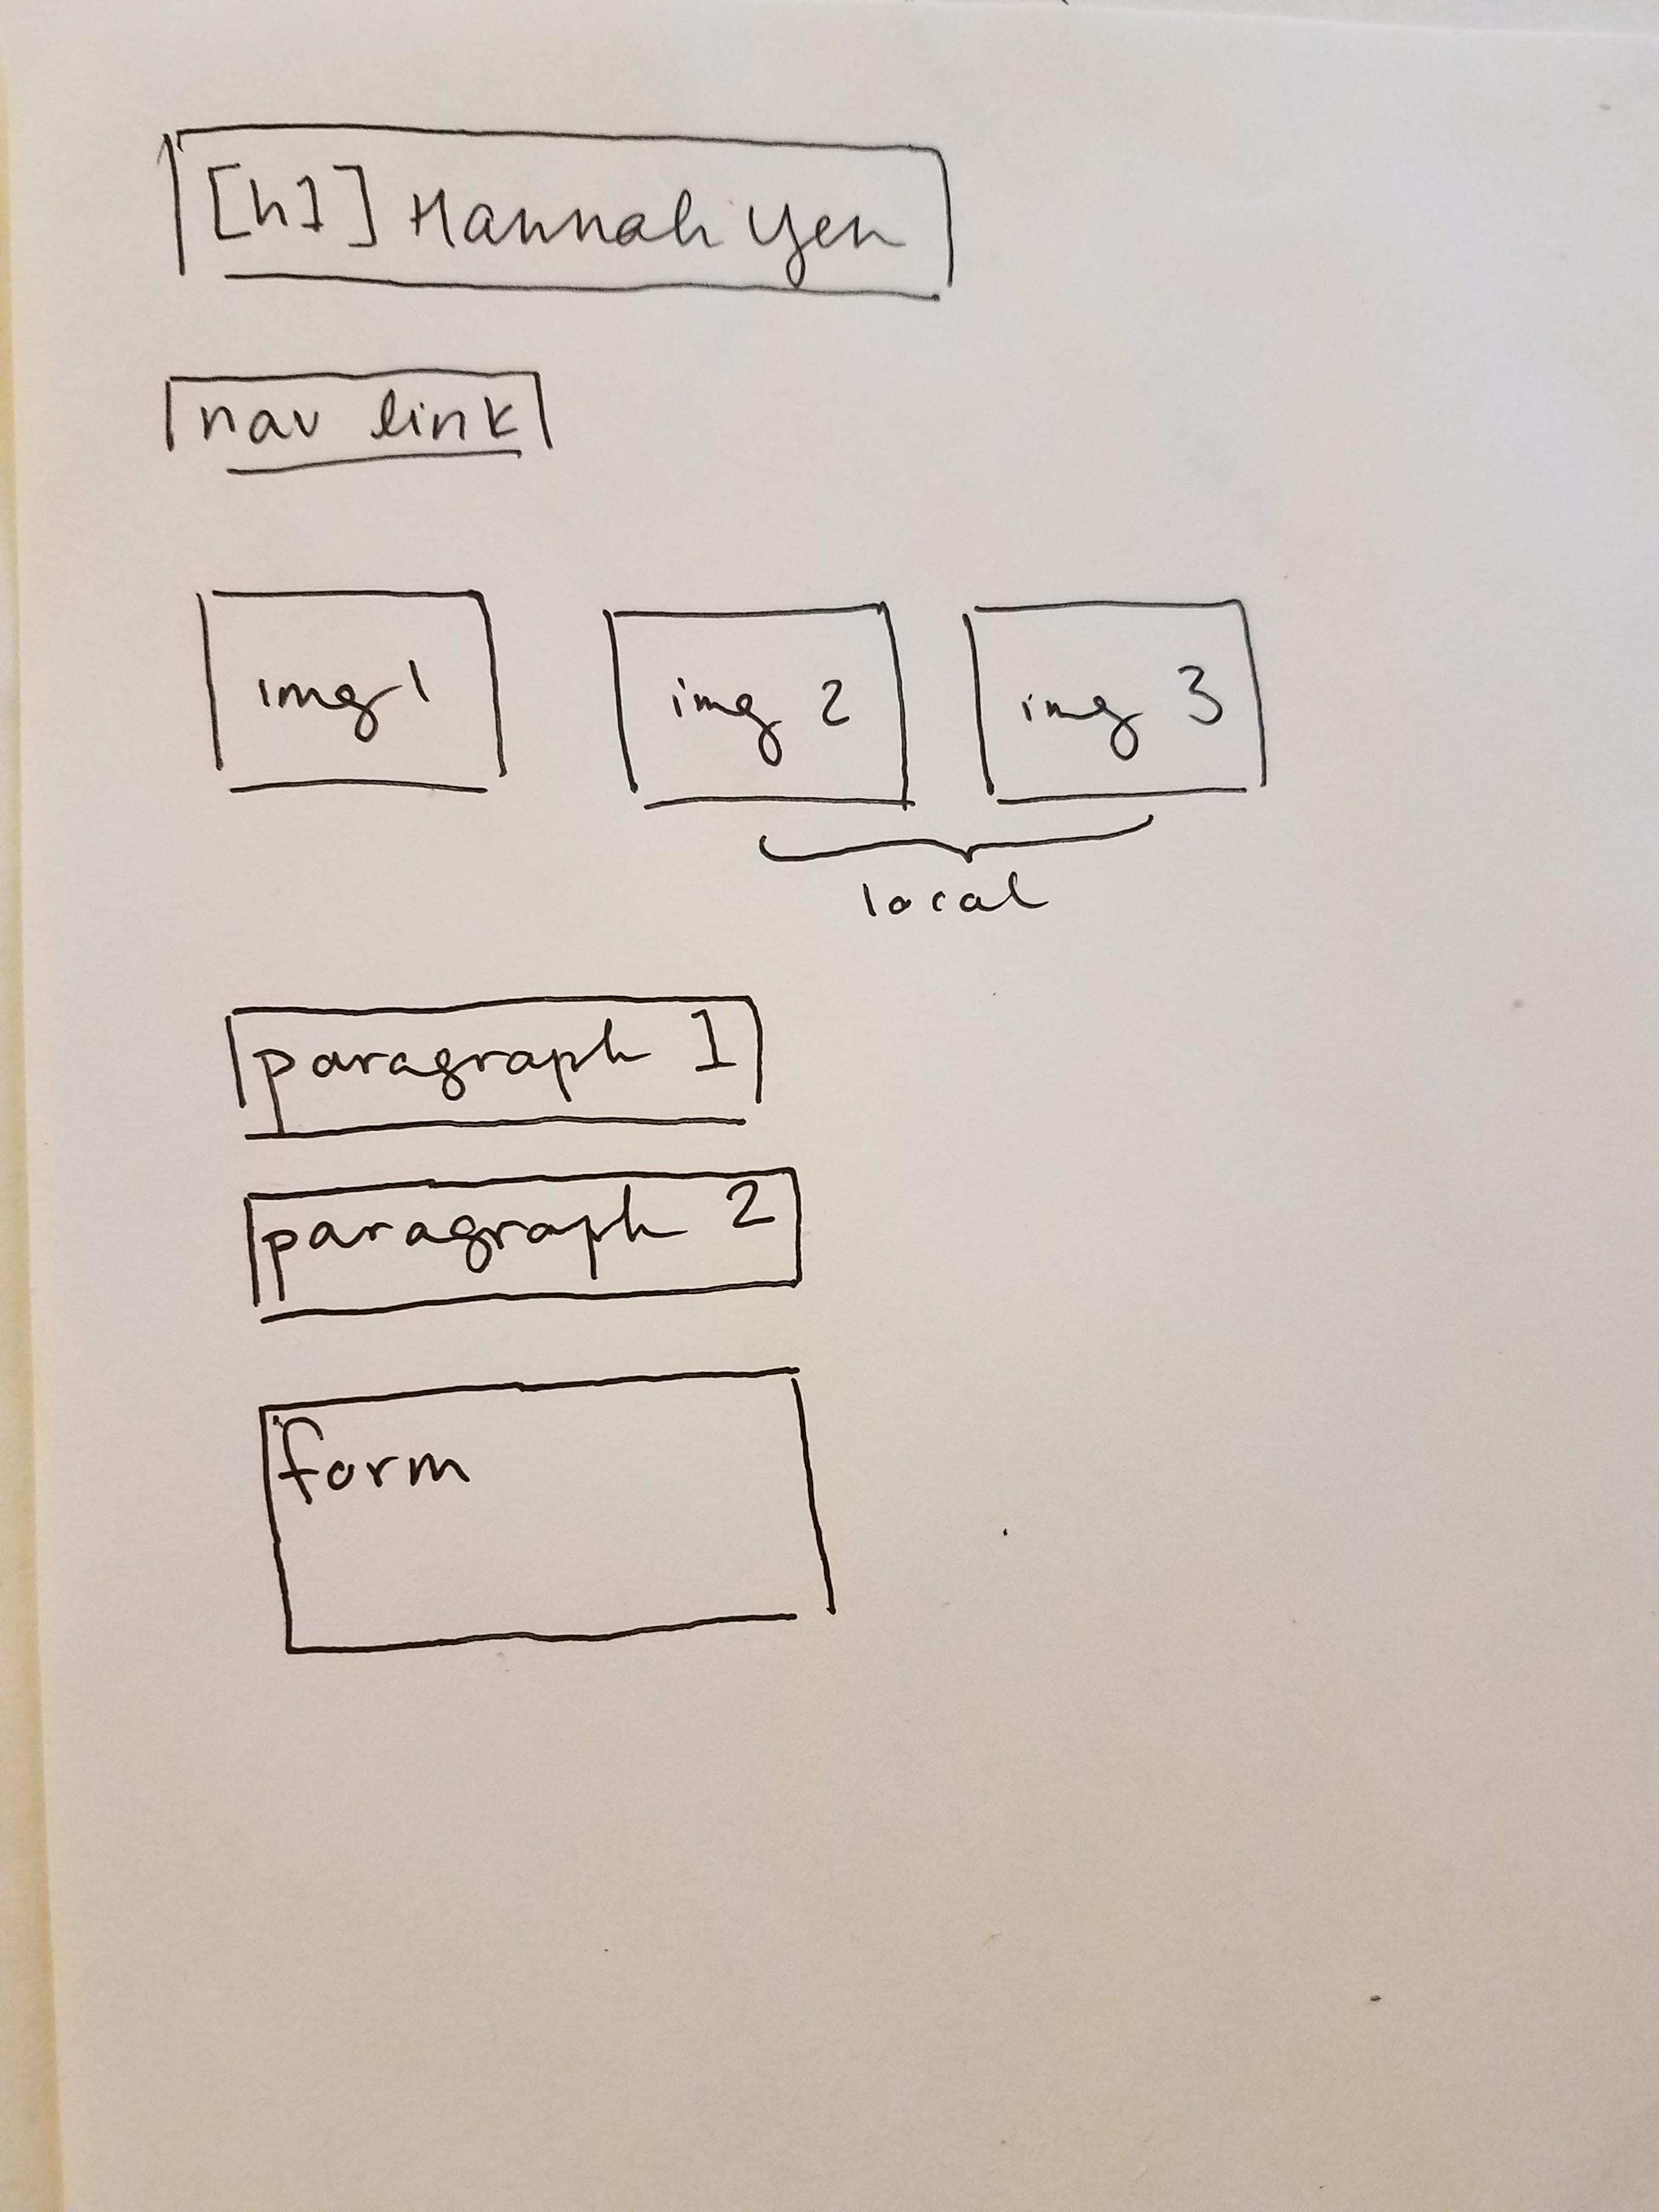 [h1] Hannah Yen
nav link
img 1 img 2 img 3
local
paragraph 1
paragraph 2
form